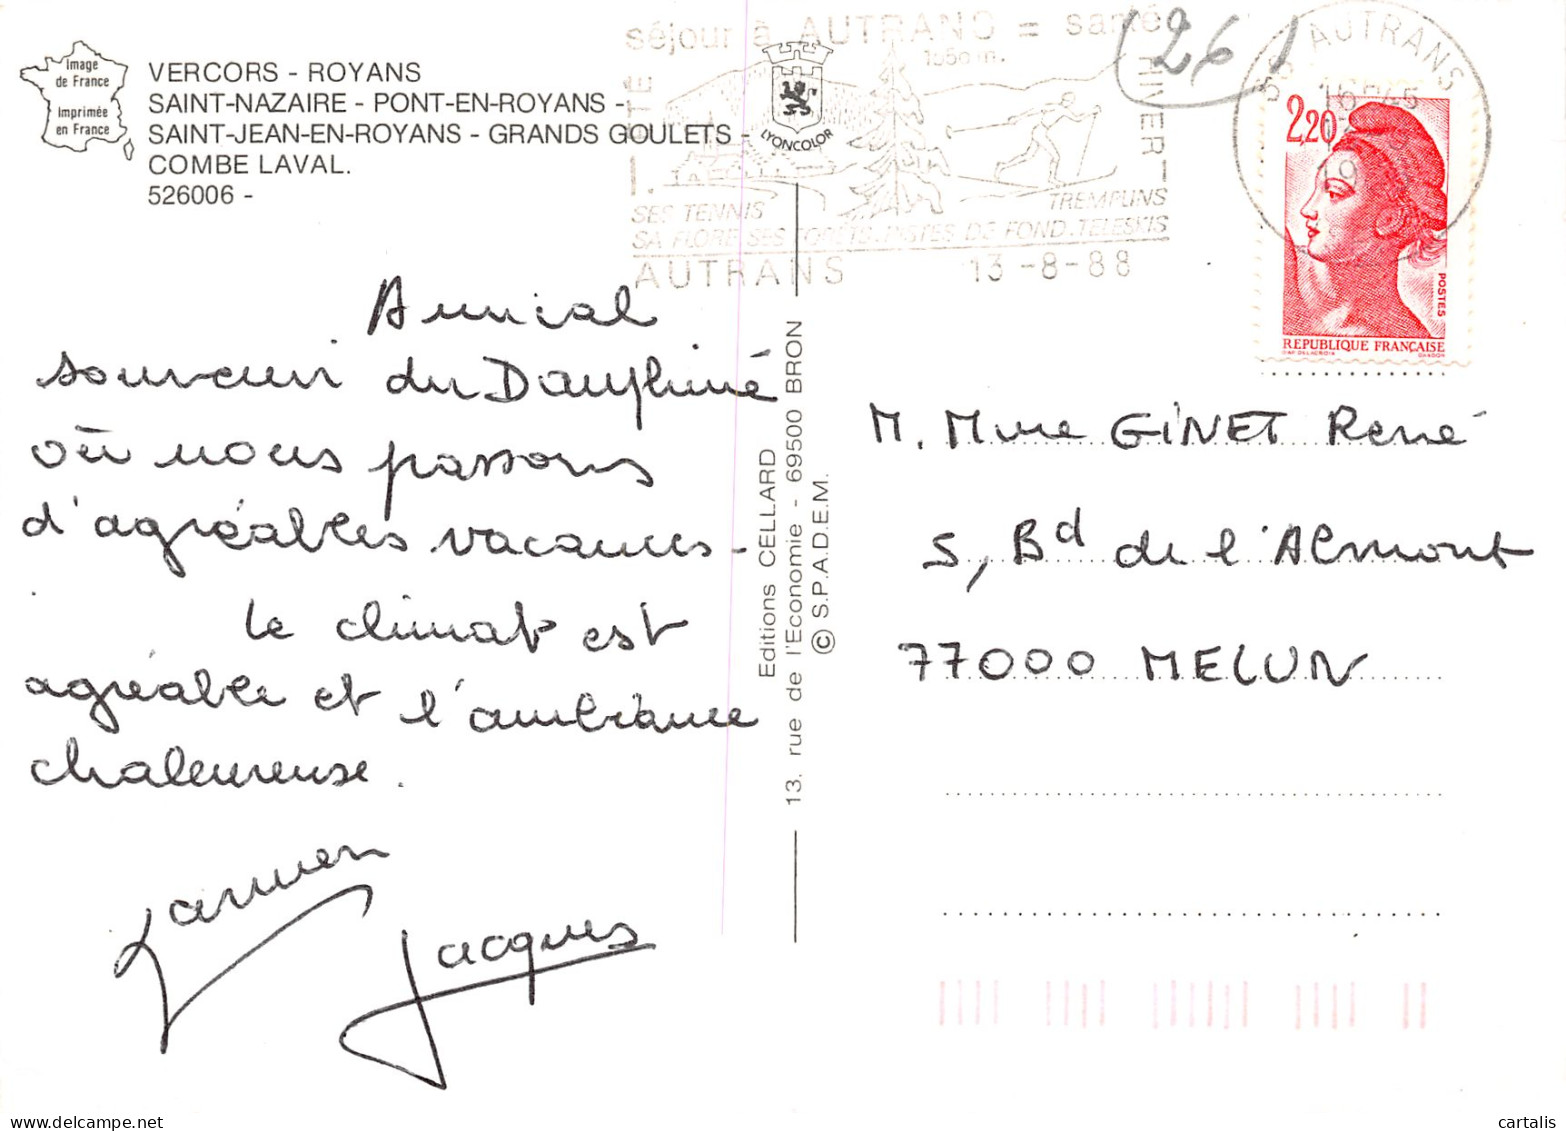 Image
de France
Imprimée
en France
VERCORS - ROYANS
SAINT-NAZAIRE - PONT-EN-ROYANS -
SAINT-JEAN-EN-ROYANS - GRANDS GOULETS -
COMBE LAVAL.
526006 -
LYONCOLOR
séjour à AUTRANS = santé
1050 m.
ÉTÉ
HIVER
SES TENNIS
TREMPLINS
SA FLORE SES FORÊTS.PISTES DE FOND.TELESKIS
AUTRANS 13-8-88
(26)
38 AUTRANS
2,20
POSTES
REPUBLIQUE FRANÇAISE
D'AP. DELACROIX GANDON
Amical
souvenir du Dauphiné
où nous passons
d'agréables vacances.
Le climat est
agréable et l'ambiance
chaleureuse.
Carmen
Jacques
Editions CELLARD
13, rue de l'Economie - 69500 BRON
© S.P.A.D.E.M.
M. Mme GINET René
5, Bd de l'Almont
77000 MELUN
cartalis